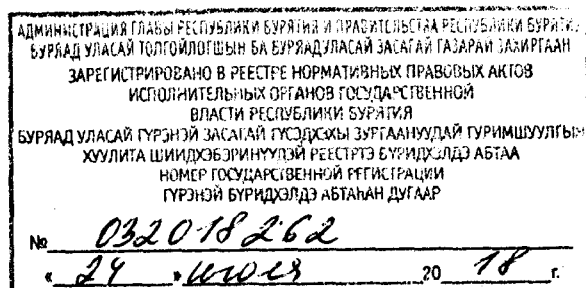 АДМИНИСТРАЦИЯ ГЛАВЫ РЕСПУБЛИКИ БУРЯТИЯ И ПРАВИТЕЛЬСТВА РЕСПУБЛИКИ БУРЯТИЯ
БУРЯАД УЛАСАЙ ТОЛГОЙЛОГШЫН БА БУРЯАД УЛАСАЙ ЗАСАГАЙ ГАЗАРАЙ ЗАХИРГААН
ЗАРЕГИСТРИРОВАНО В РЕЕСТРЕ НОРМАТИВНЫХ ПРАВОВЫХ АКТОВ
ИСПОЛНИТЕЛЬНЫХ ОРГАНОВ ГОСУДАРСТВЕННОЙ
ВЛАСТИ РЕСПУБЛИКИ БУРЯТИЯ
БУРЯАД УЛАСАЙ ГҮРЭНЭЙ ЗАСАГАЙ ГҮСЭДХЭХЫ ЗУРГААНУУДАЙ ГУРИМШУУЛГЫН
ХУУЛИТА ШИИДХЭБЭРИНҮҮДЭЙ РЕЕСТРТЭ БҮРИДХЭЛДЭ АБТАА
НОМЕР ГОСУДАРСТВЕННОЙ РЕГИСТРАЦИИ
ГҮРЭНЭЙ БҮРИДХЭЛДЭ АБТАҺАН ДУГААР
№ 032018262
« 24 » июля 20 18 г.